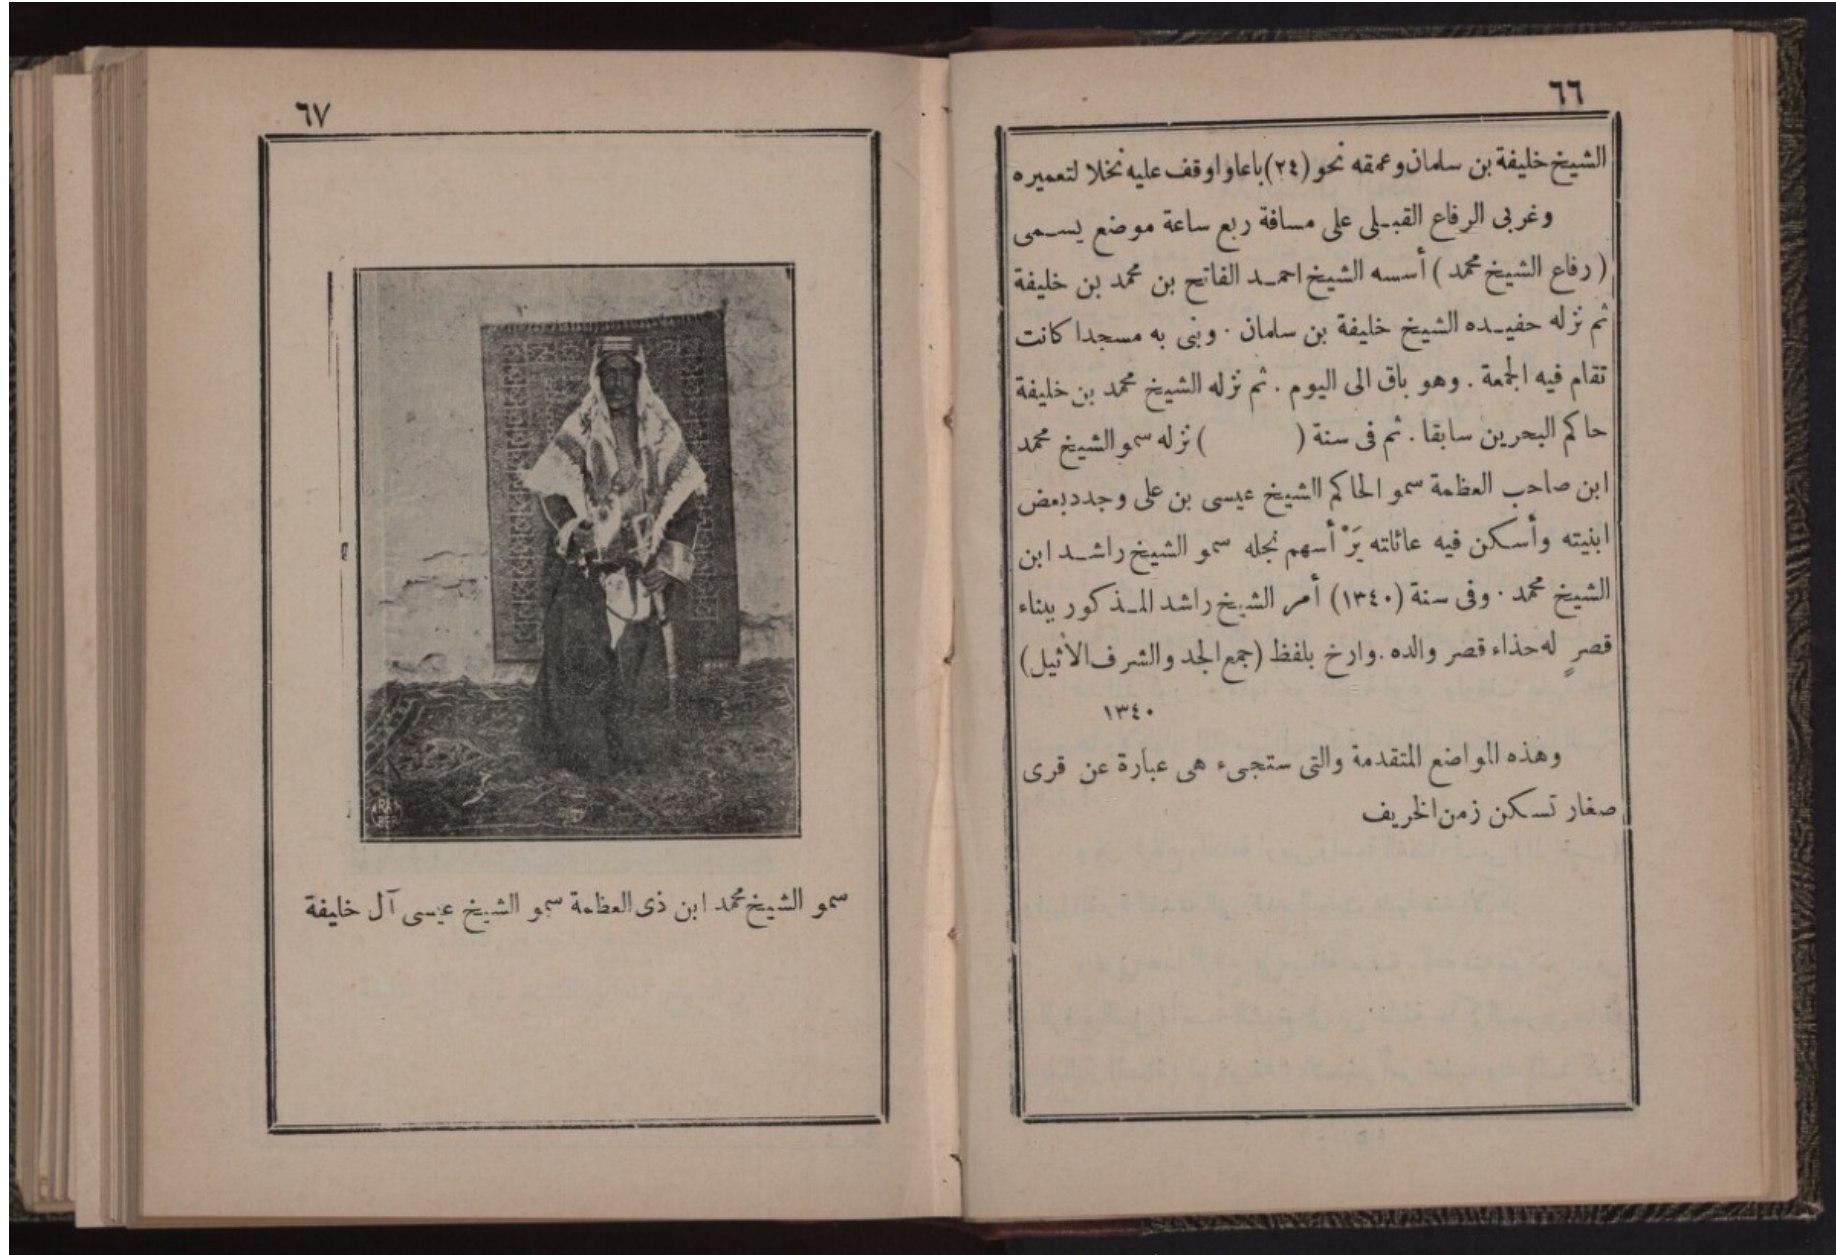 ٦٦
الشيخ خليفة بن سلمان وعمقه نحو (٢٤) باعا واوقف عليه نخلا لتعميره
وغربى الرفاع القبلى على مسافة ربع ساعة موضع يسمى
( رفاع الشيخ محمد ) أسسه الشيخ احمد الفاتح بن محمد بن خليفة
ثم نزله حفيده الشيخ خليفة بن سلمان . وبنى به مسجدا كانت
تقام فيه الجمعة . وهو باق الى اليوم . ثم نزله الشيخ محمد بن خليفة
حاكم البحرين سابقا . ثم فى سنة ( ) نزله سمو الشيخ محمد
ابن صاحب العظمة سمو الحاكم الشيخ عيسى بن على وجدد بعض
ابنيته وأسكن فيه عائلته يَرْأسهم نجله سمو الشيخ راشد ابن
الشيخ محمد . وفى سنة (١٣٤٠) أمر الشيخ راشد المذكور ببناء
قصرٍ له حذاء قصر والده . وارخ بلفظ (جمع المجد والشرف الاثيل)
١٣٤٠
وهذه المواضع المتقدمة والتى ستجىء هى عبارة عن قرى
صغار تسكن زمن الخريف
٦٧
سمو الشيخ محمد ابن ذى العظمة سمو الشيخ عيسى آل خليفة